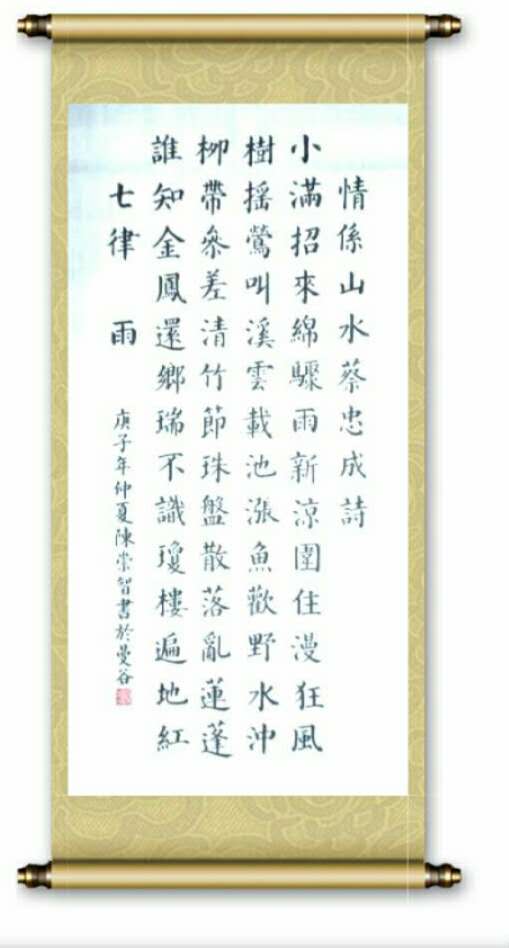 情係山水蔡忠成詩
小滿招來綿驟雨新涼圍住漫狂風
樹搖鶯叫溪雲載池漲魚歡野水沖
柳帶參差清竹節珠盤散落亂蓮蓬
誰知金鳳還鄉瑞不識瓊樓遍地紅
七律 雨
庚子年仲夏陳崇智書於曼谷